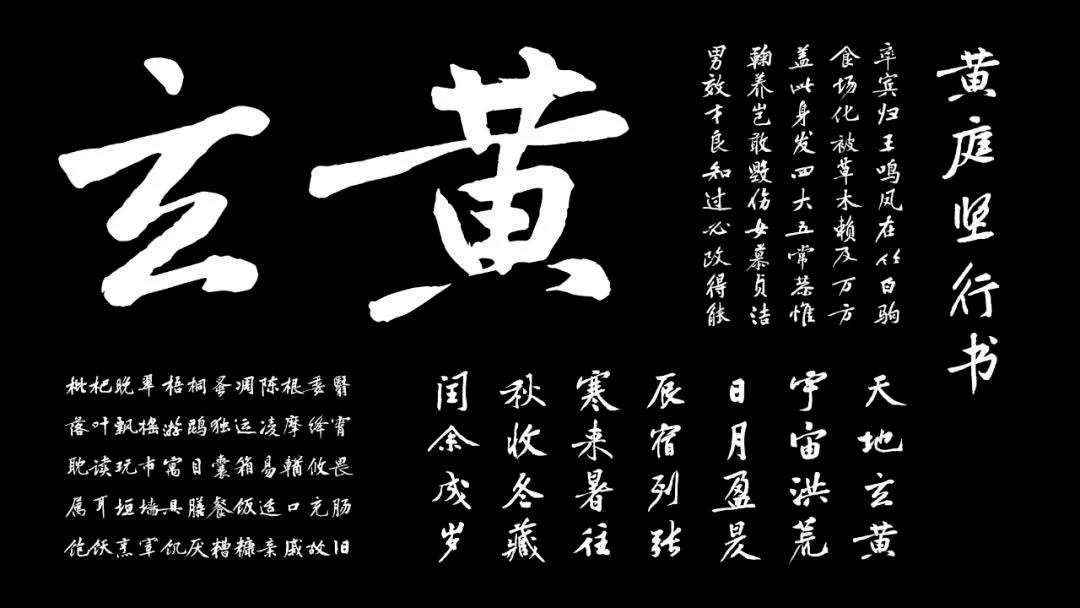 玄黄
黄庭坚行书
率宾归王鸣凤在竹白驹
食场化被草木赖及万方
盖此身发四大五常恭惟
鞠养岂敢毁伤女慕贞洁
男效才良知过必改得能
天地玄黄
宇宙洪荒
日月盈昃
辰宿列张
寒来暑往
秋收冬藏
闰余成岁
枇杷晚翠梧桐蚤凋陈根委翳
落叶飘摇游鹍独运凌摩绛霄
耽读玩市寓目囊箱易輶攸畏
属耳垣墙具膳餐饭适口充肠
饱饫烹宰饥厌糟糠亲戚故旧